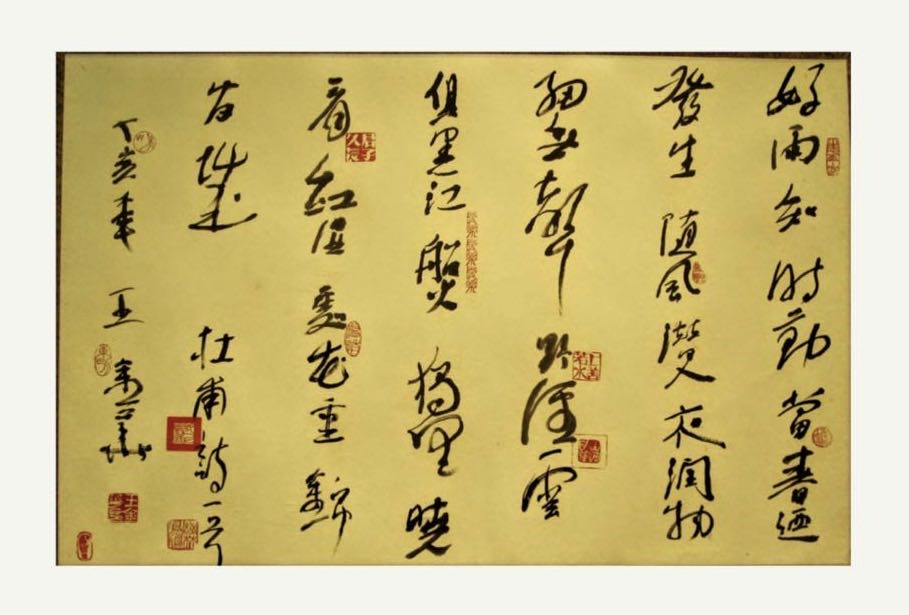 好雨知時節當春迺
發生随風潛入夜潤物
細無聲野徑雲
俱黑江船火獨明曉
看紅濕處花重錦
官城 杜甫詩一首
丁亥年 王
上善若水